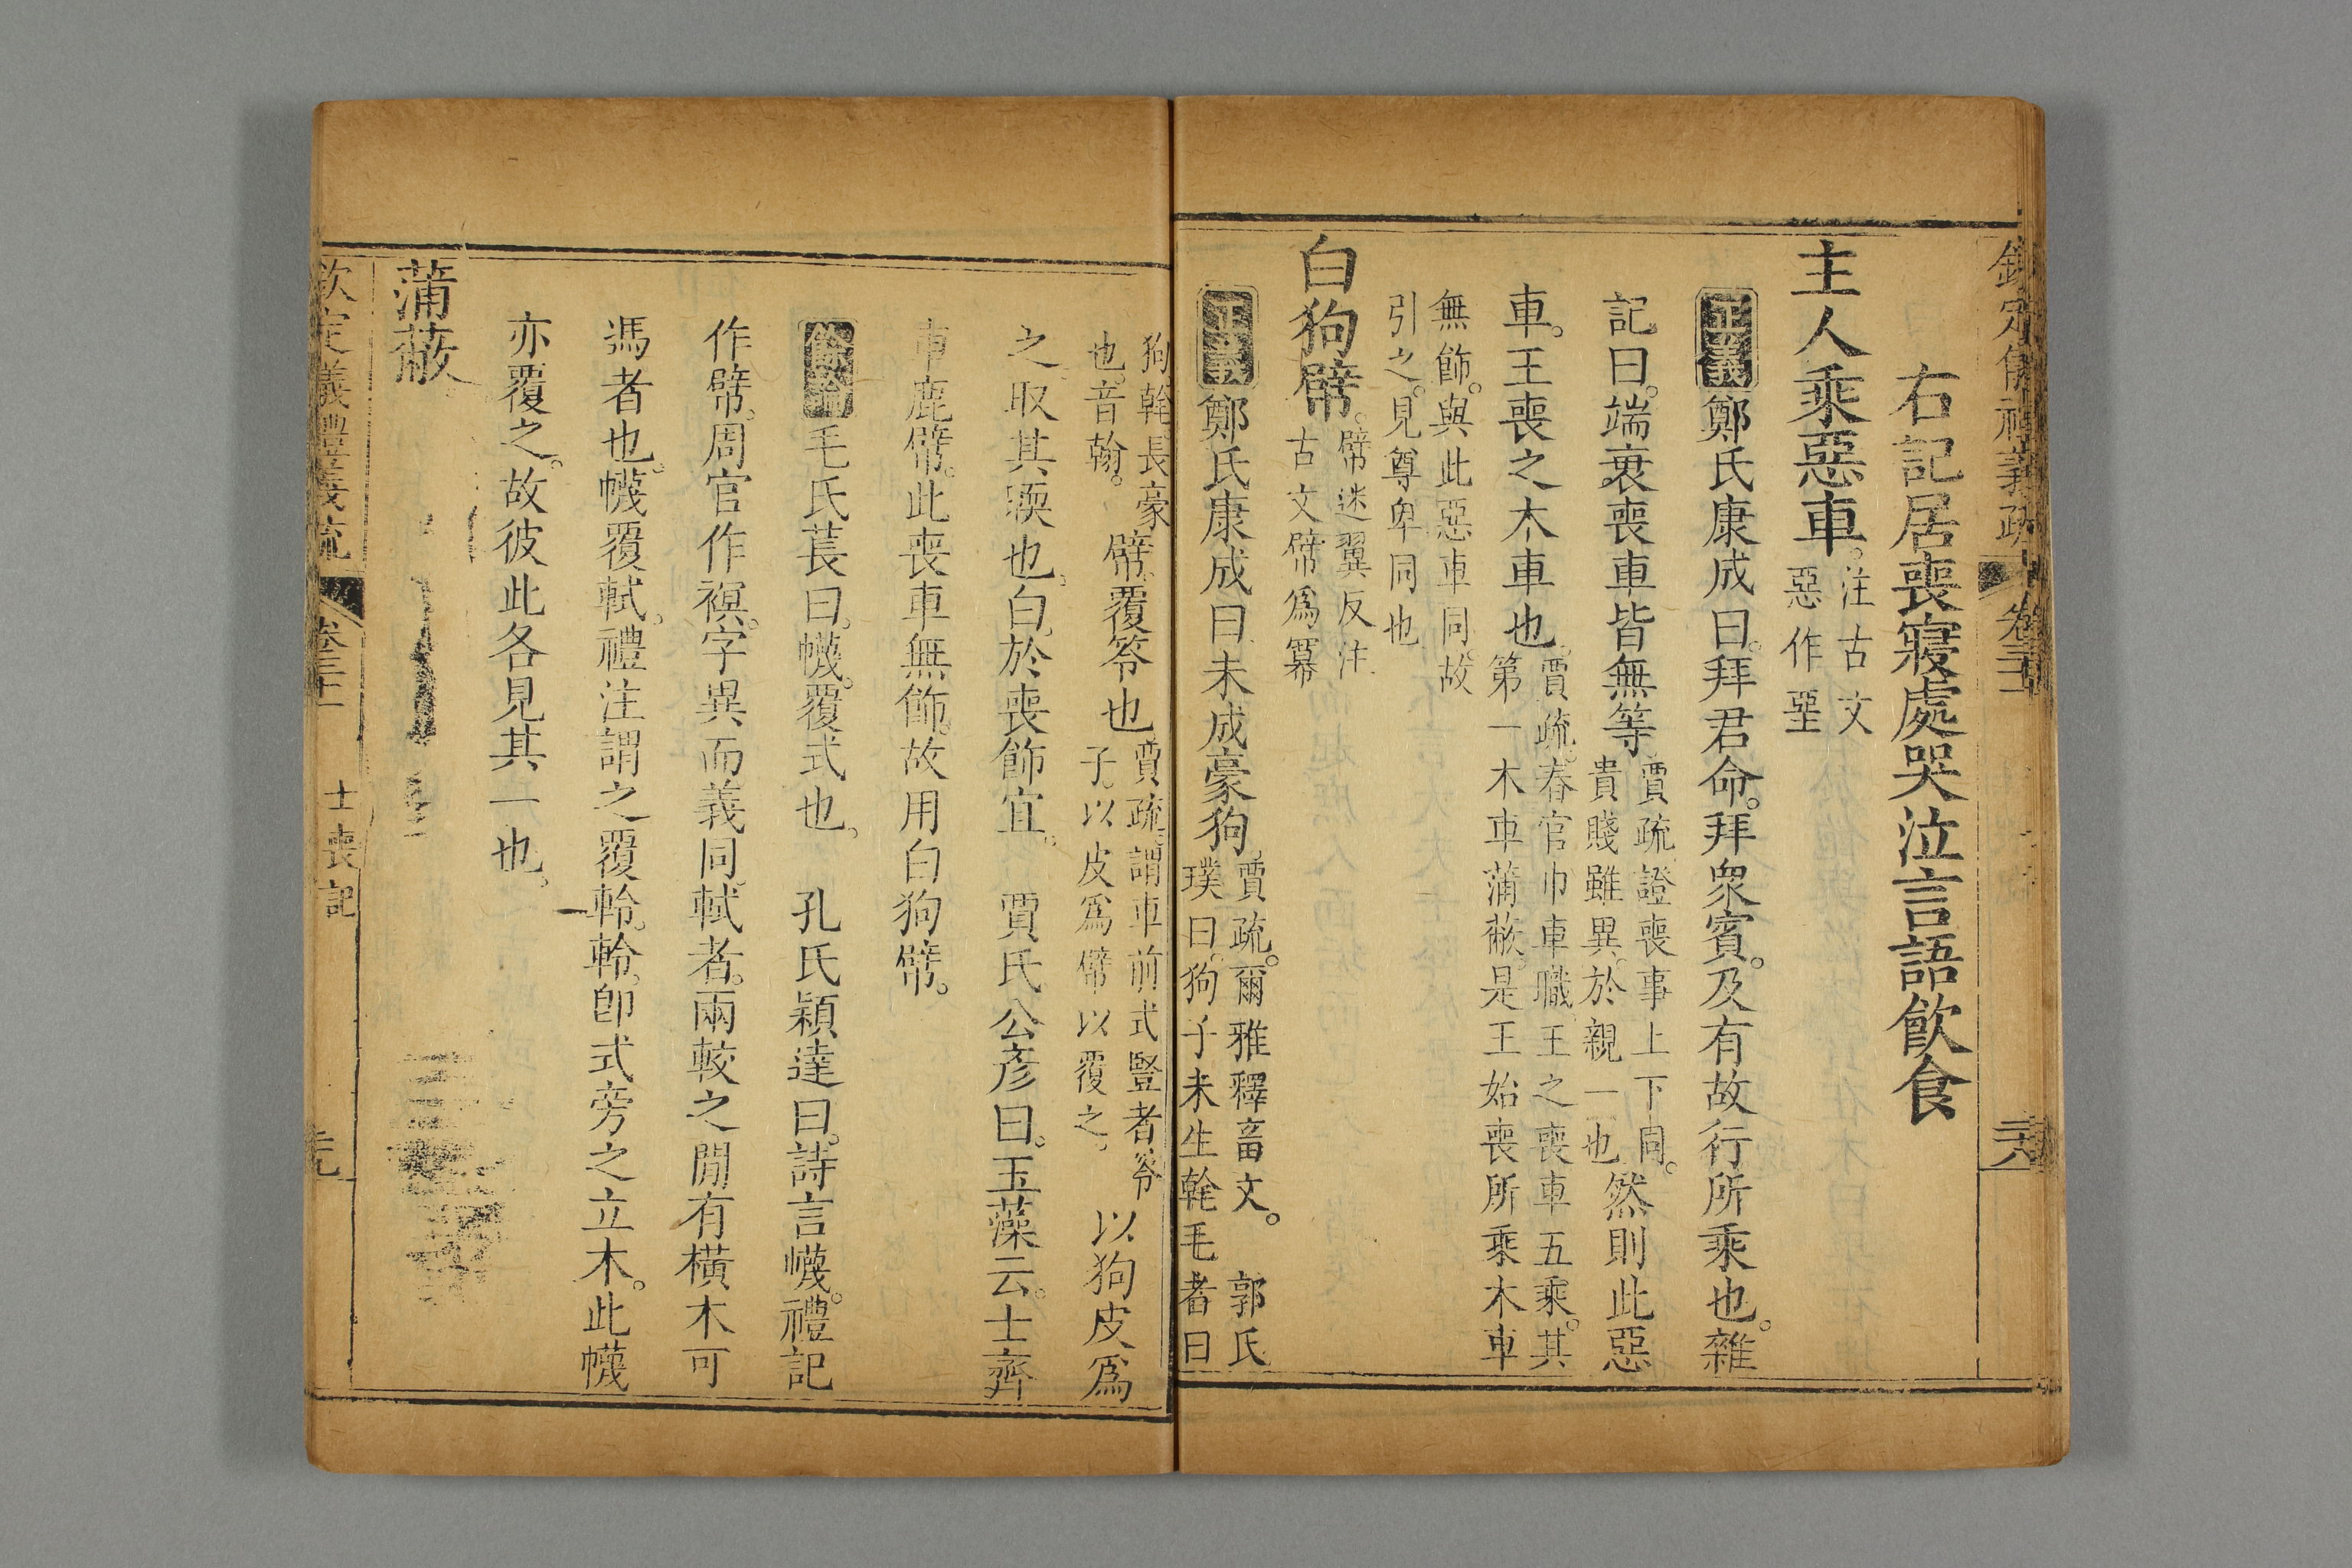 欽定儀禮義疏 卷三十一 二十八
右記居喪寢處哭泣言語飲食
主人乘惡車。注古文惡作堊
正義鄭氏康成曰。拜君命。拜衆賓。及有故行所乘也。雜
記曰。端衰喪車皆無等。賈疏。證喪事上下同。貴賤雖異。於親一也。然則此惡
車。王喪之木車也。賈疏。春官巾車職。王之喪車五乘。其第一木車蒲蔽。是王始喪所乘木車
無飾。與此惡車同。故引之。見尊卑同也
白狗幦。幦迷翼反注古文幦爲冪
正義鄭氏康成曰。未成豪狗。賈疏。爾雅釋畜文。 郭氏璞曰。狗子未生幹毛者曰
狗幹長豪也。音翰。幦。覆笭也。賈疏。謂車前式豎者笭子。以皮爲幦以覆之。以狗皮爲
之。取其䎡也。白。於喪飾宜。 賈氏公彥曰。玉藻云。士齊
車鹿幦。此喪車無飾。故用白狗幦。
餘論毛氏萇曰。幭。覆式也。 孔氏穎達曰。詩言幭。禮記
作幦。周官作䙏。字異而義同。軾者。兩較之閒有橫木可
馮者也。幭覆軾。禮注謂之覆軨。軨。卽式旁之立木。此幭
亦覆之。故彼此各見其一也。
蒲蔽。
欽定儀禮義疏 卷三十一 士喪記 二十九